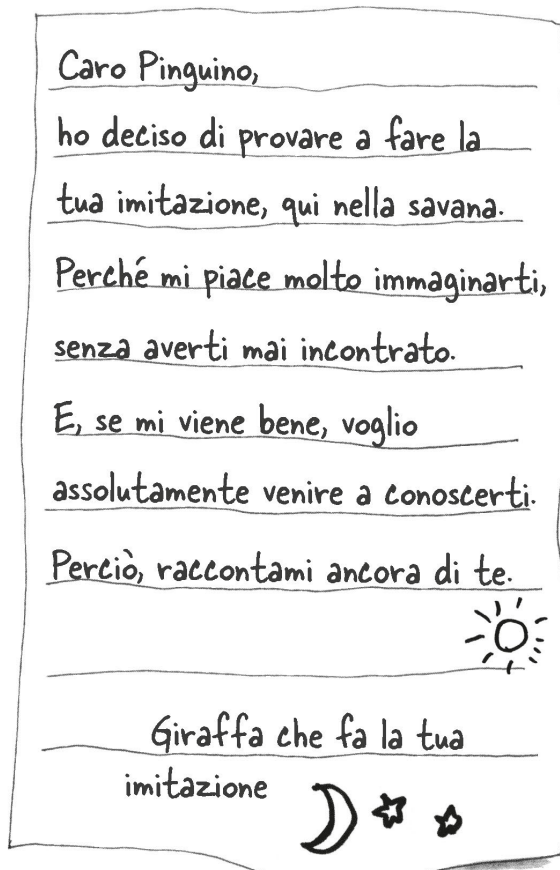 Caro Pinguino,
ho deciso di provare a fare la
tua imitazione, qui nella savana.
Perché mi piace molto immaginarti,
senza averti mai incontrato.
E, se mi viene bene, voglio
assolutamente venire a conoscerti.
Perciò, raccontami ancora di te.
Giraffa che fa la tua
imitazione